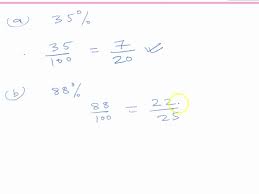 (a) 35%
35/100 = 7/20
(b) 88%
88/100 = 22/25